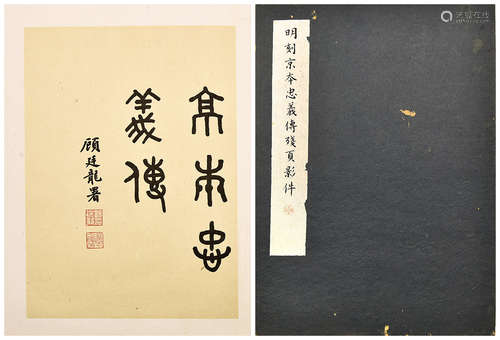 京本忠
義傳
顧廷龍署
明刻京本忠義傳殘頁影件